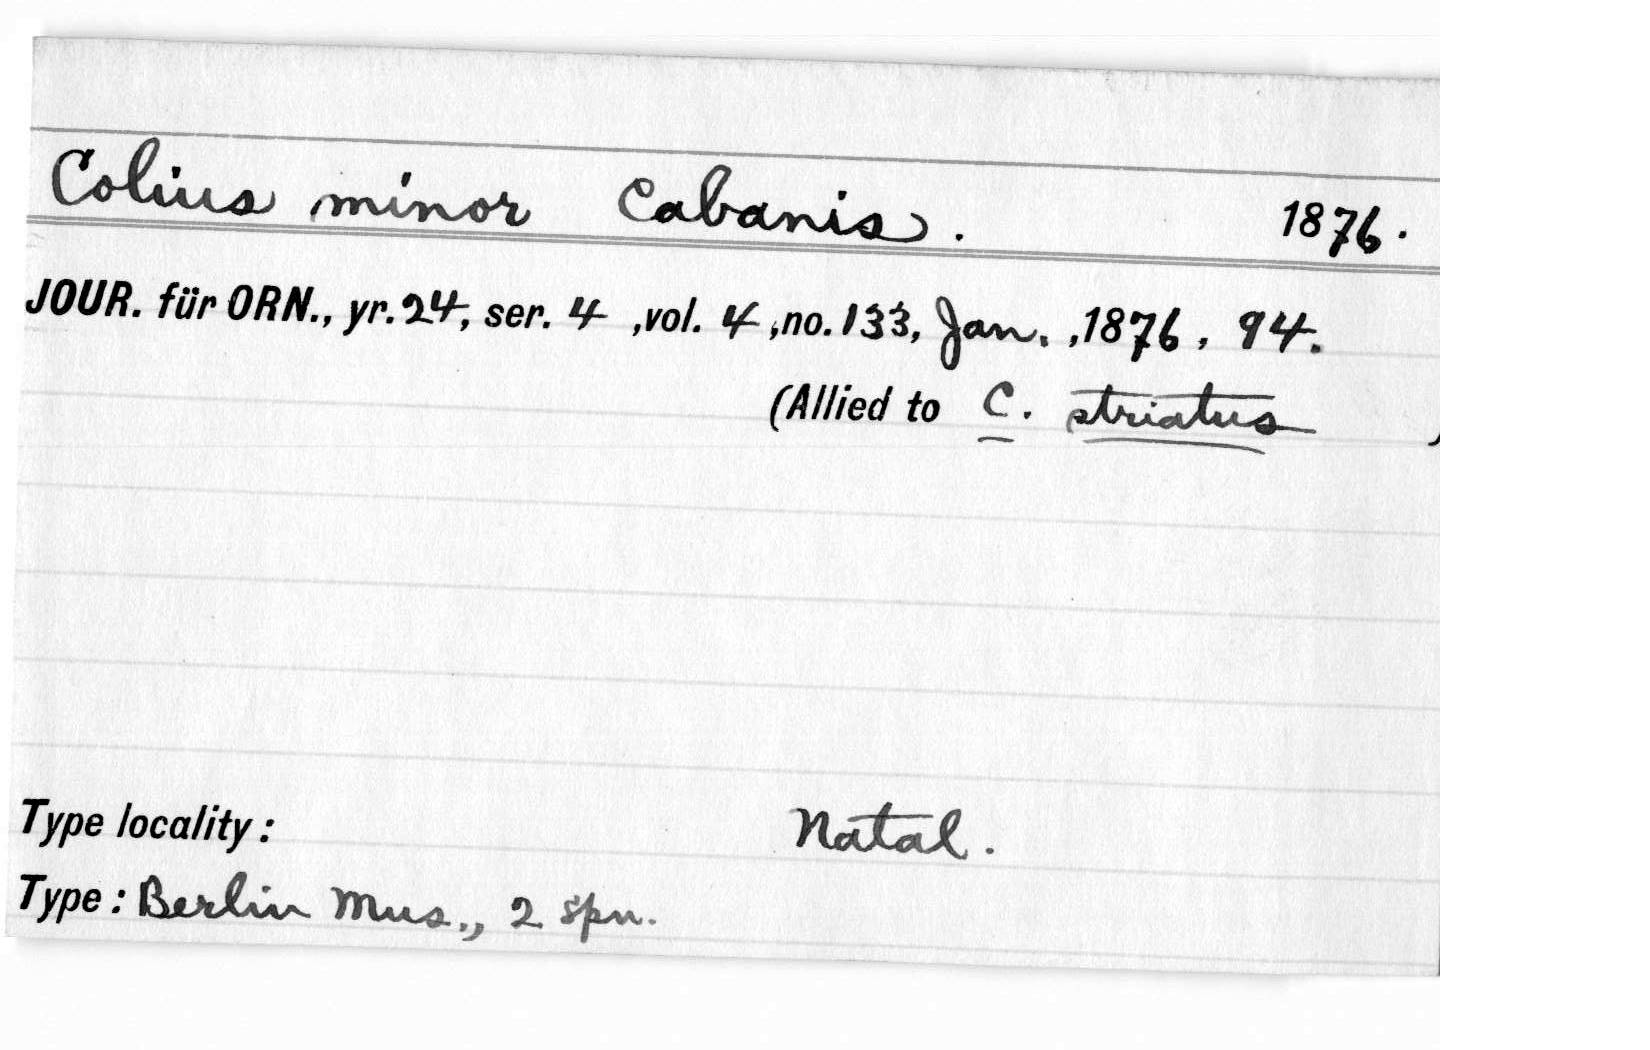 Colius minor Cabanis. 1876.
JOUR. für ORN., yr. 24, ser. 4 ,vol. 4 ,no. 133, Jan. ,1876 , 94.
(Allied to C. striatus )
Type locality: Natal.
Type: Berlin Mus., 2 spn.